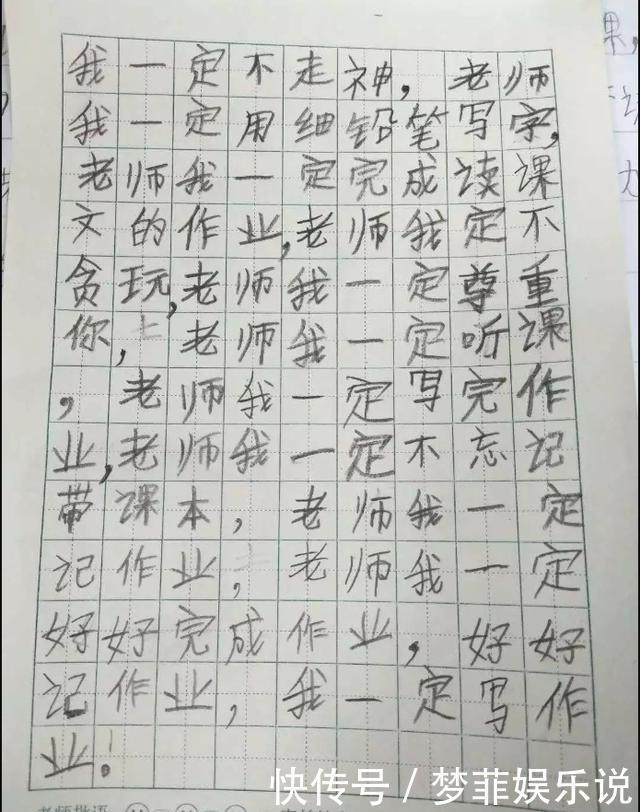 我一定不走神,老师
我一定用细铅笔写字,
老师我一定完成读课
文的作业,老师我定不
贪玩,老师我一定尊重
你,老师我一定听课
,老师我一定写完作
业,老师我一定不忘记
带课本,老师我一定
记作业,老师我一定
好好完成作业,好好
记作业,我一定写作
业!
快传号/梦菲娱乐说